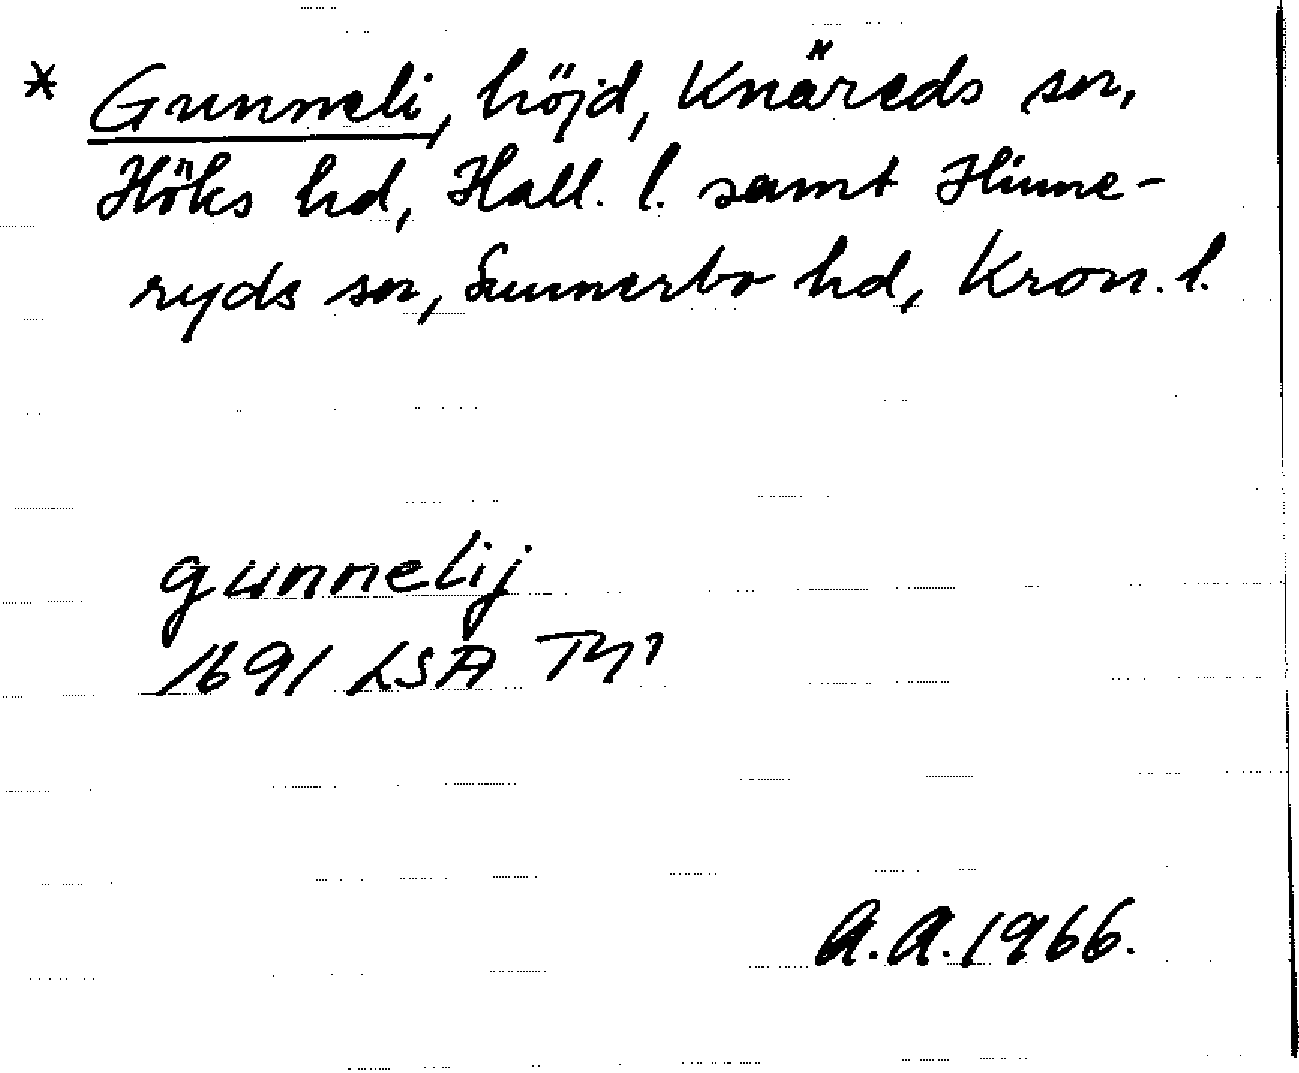 * Gunneli, höjd, Knäreds sn,
Höks hd, Hall. l. samt Hinne-
ryds sn, Sunnerbo hd, Kron. l.
gunnelij
1691 LSA
A.A. 1966.